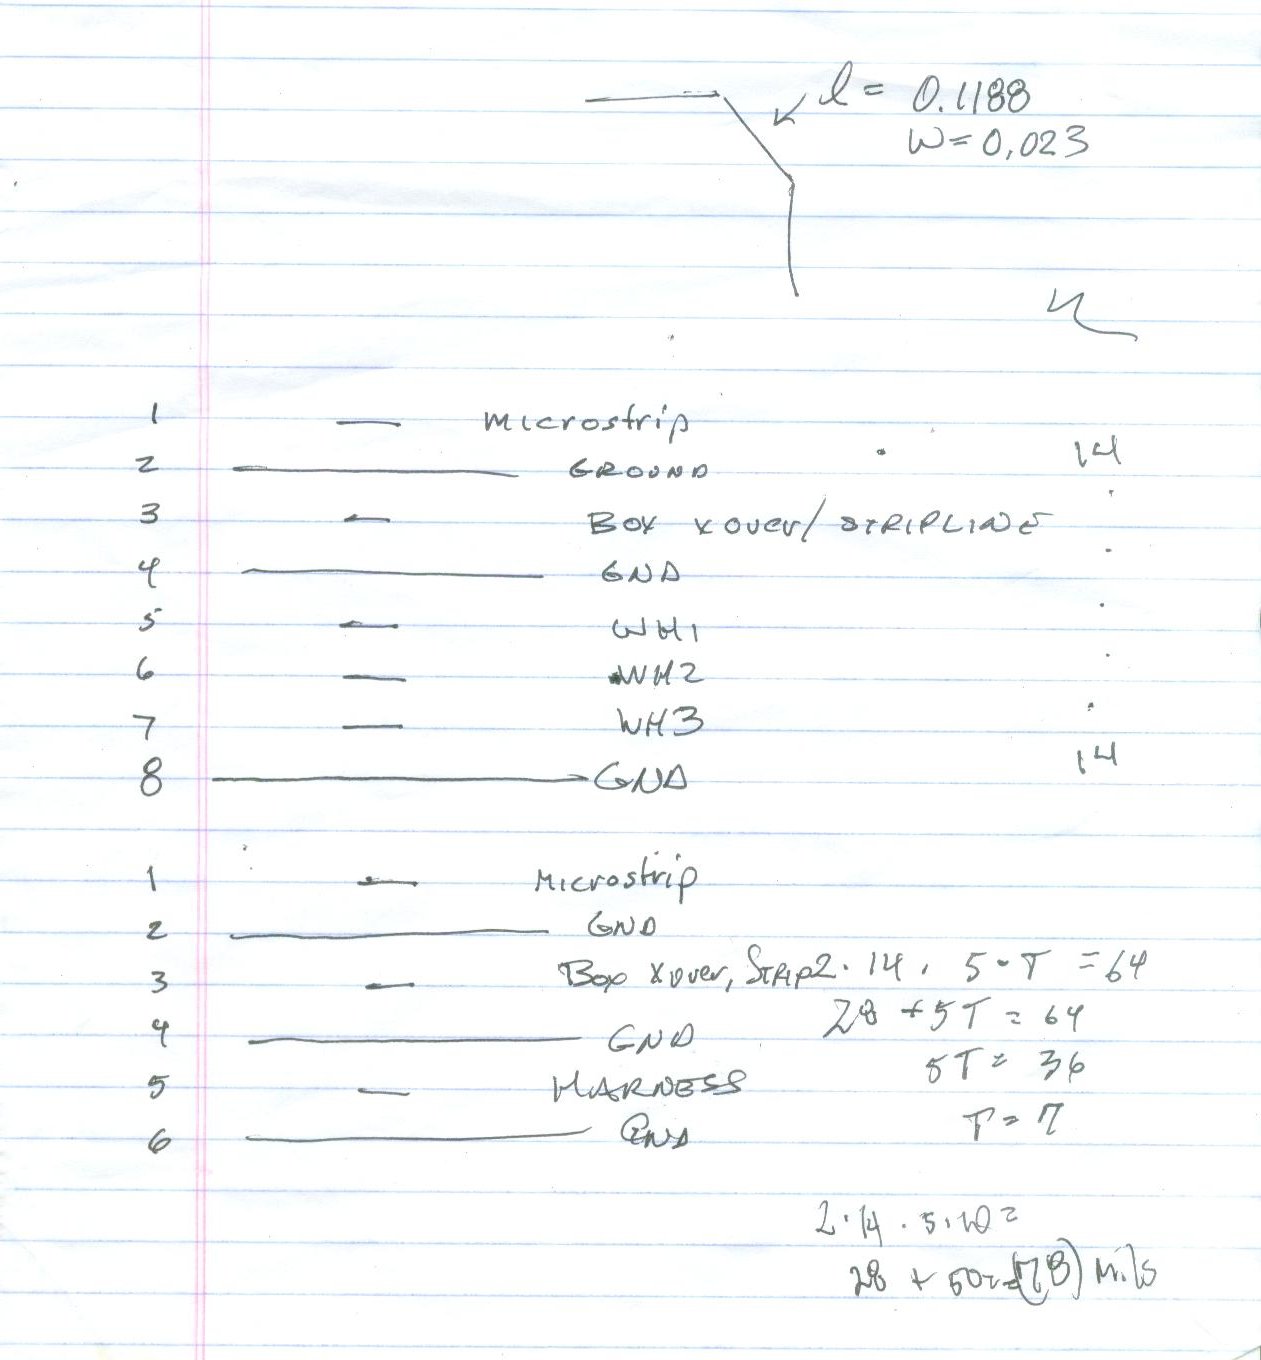 l = 0.1188
W=0,023
1 Microstrip
2 GROUND 14
3 BOX XOVER/STRIPLINE
4 GND
5 WH1
6 WH2
7 WH3 14
8 GND
1 Microstrip
2 GND
3 Box Xover, Strip 2 · 14 . 5 · T = 64
28 + 5T = 64
4 GND
5T = 36
5 HARNESS
T = 7
6 GND
2 · 14 . 5 · 10 =
28 + 50 = (78) Mils